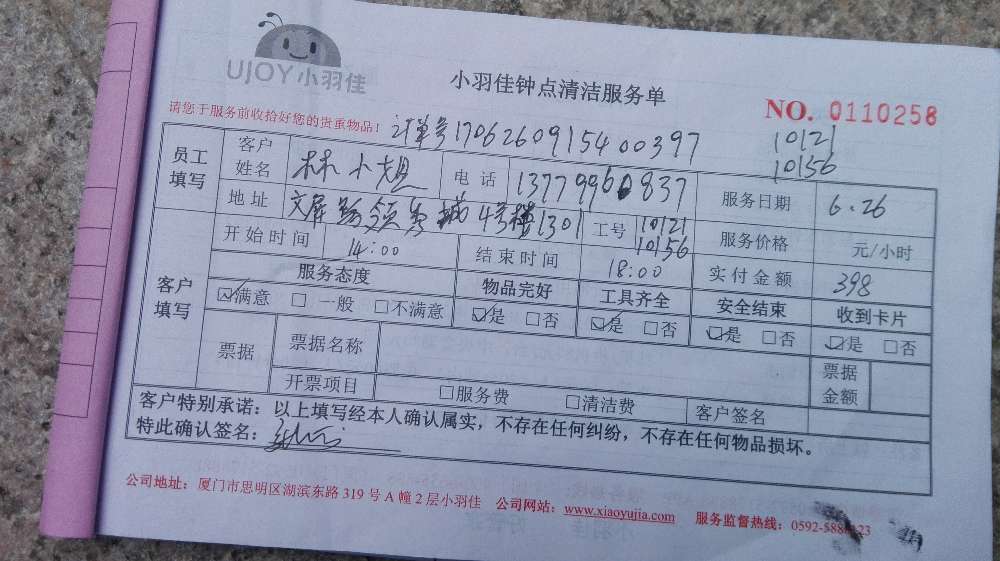 UJOY小羽佳
小羽佳钟点清洁服务单
NO. 0110258
请您于服务前收拾好您的贵重物品！
订单号170626091540 0397
10121
10156
员工填写
客户姓名 林小姐 电话 13779960837 服务日期 6.26
地址 文屏路领秀城4号楼1301 工号 10121 10156 服务价格 元/小时
开始时间 14:00 结束时间 18:00 实付金额 398
客户填写
服务态度 物品完好 工具齐全 安全结束 收到卡片
☑满意 □一般 □不满意 ☑是 □否 ☑是 □否 ☑是 □否 ☑是 □否
票据 票据名称 票据金额
开票项目 □服务费 □清洁费 客户签名
客户特别承诺：以上填写经本人确认属实，不存在任何纠纷，不存在任何物品损坏。
特此确认签名：
公司地址：厦门市思明区湖滨东路319号A幢2层小羽佳 公司网站：www.xiaoyujia.com 服务监督热线：0592-588